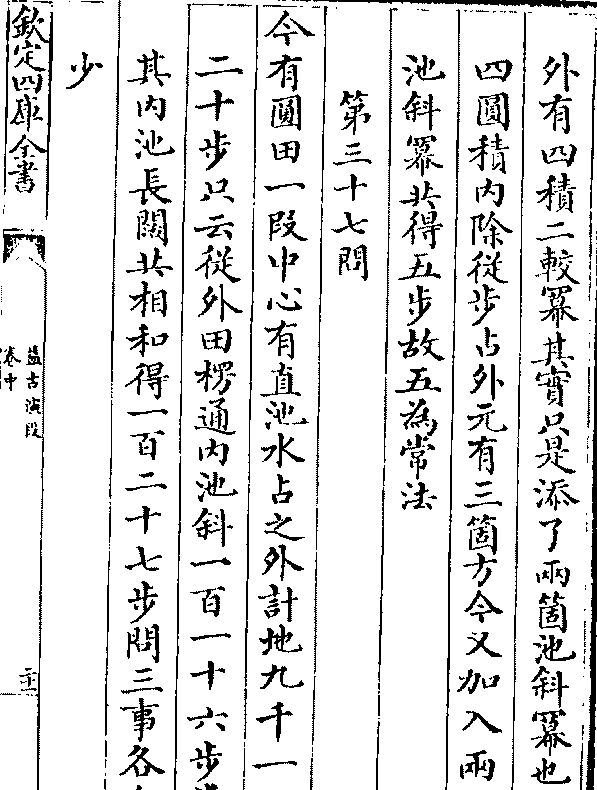 外有四積二較冪其實只是添了兩箇池斜冪也
四圓積内除從步占外元有三箇方今又加入兩
池斜冪共得五步故五為常法
第三十七問
今有圓田一段中心有直池水占之外計地九千一
二十步只云從外田楞通内池斜一百一十六步
其内池長闊共相和得一百二十七步問三事各
少
欽定四庫全書
益古演段
卷中